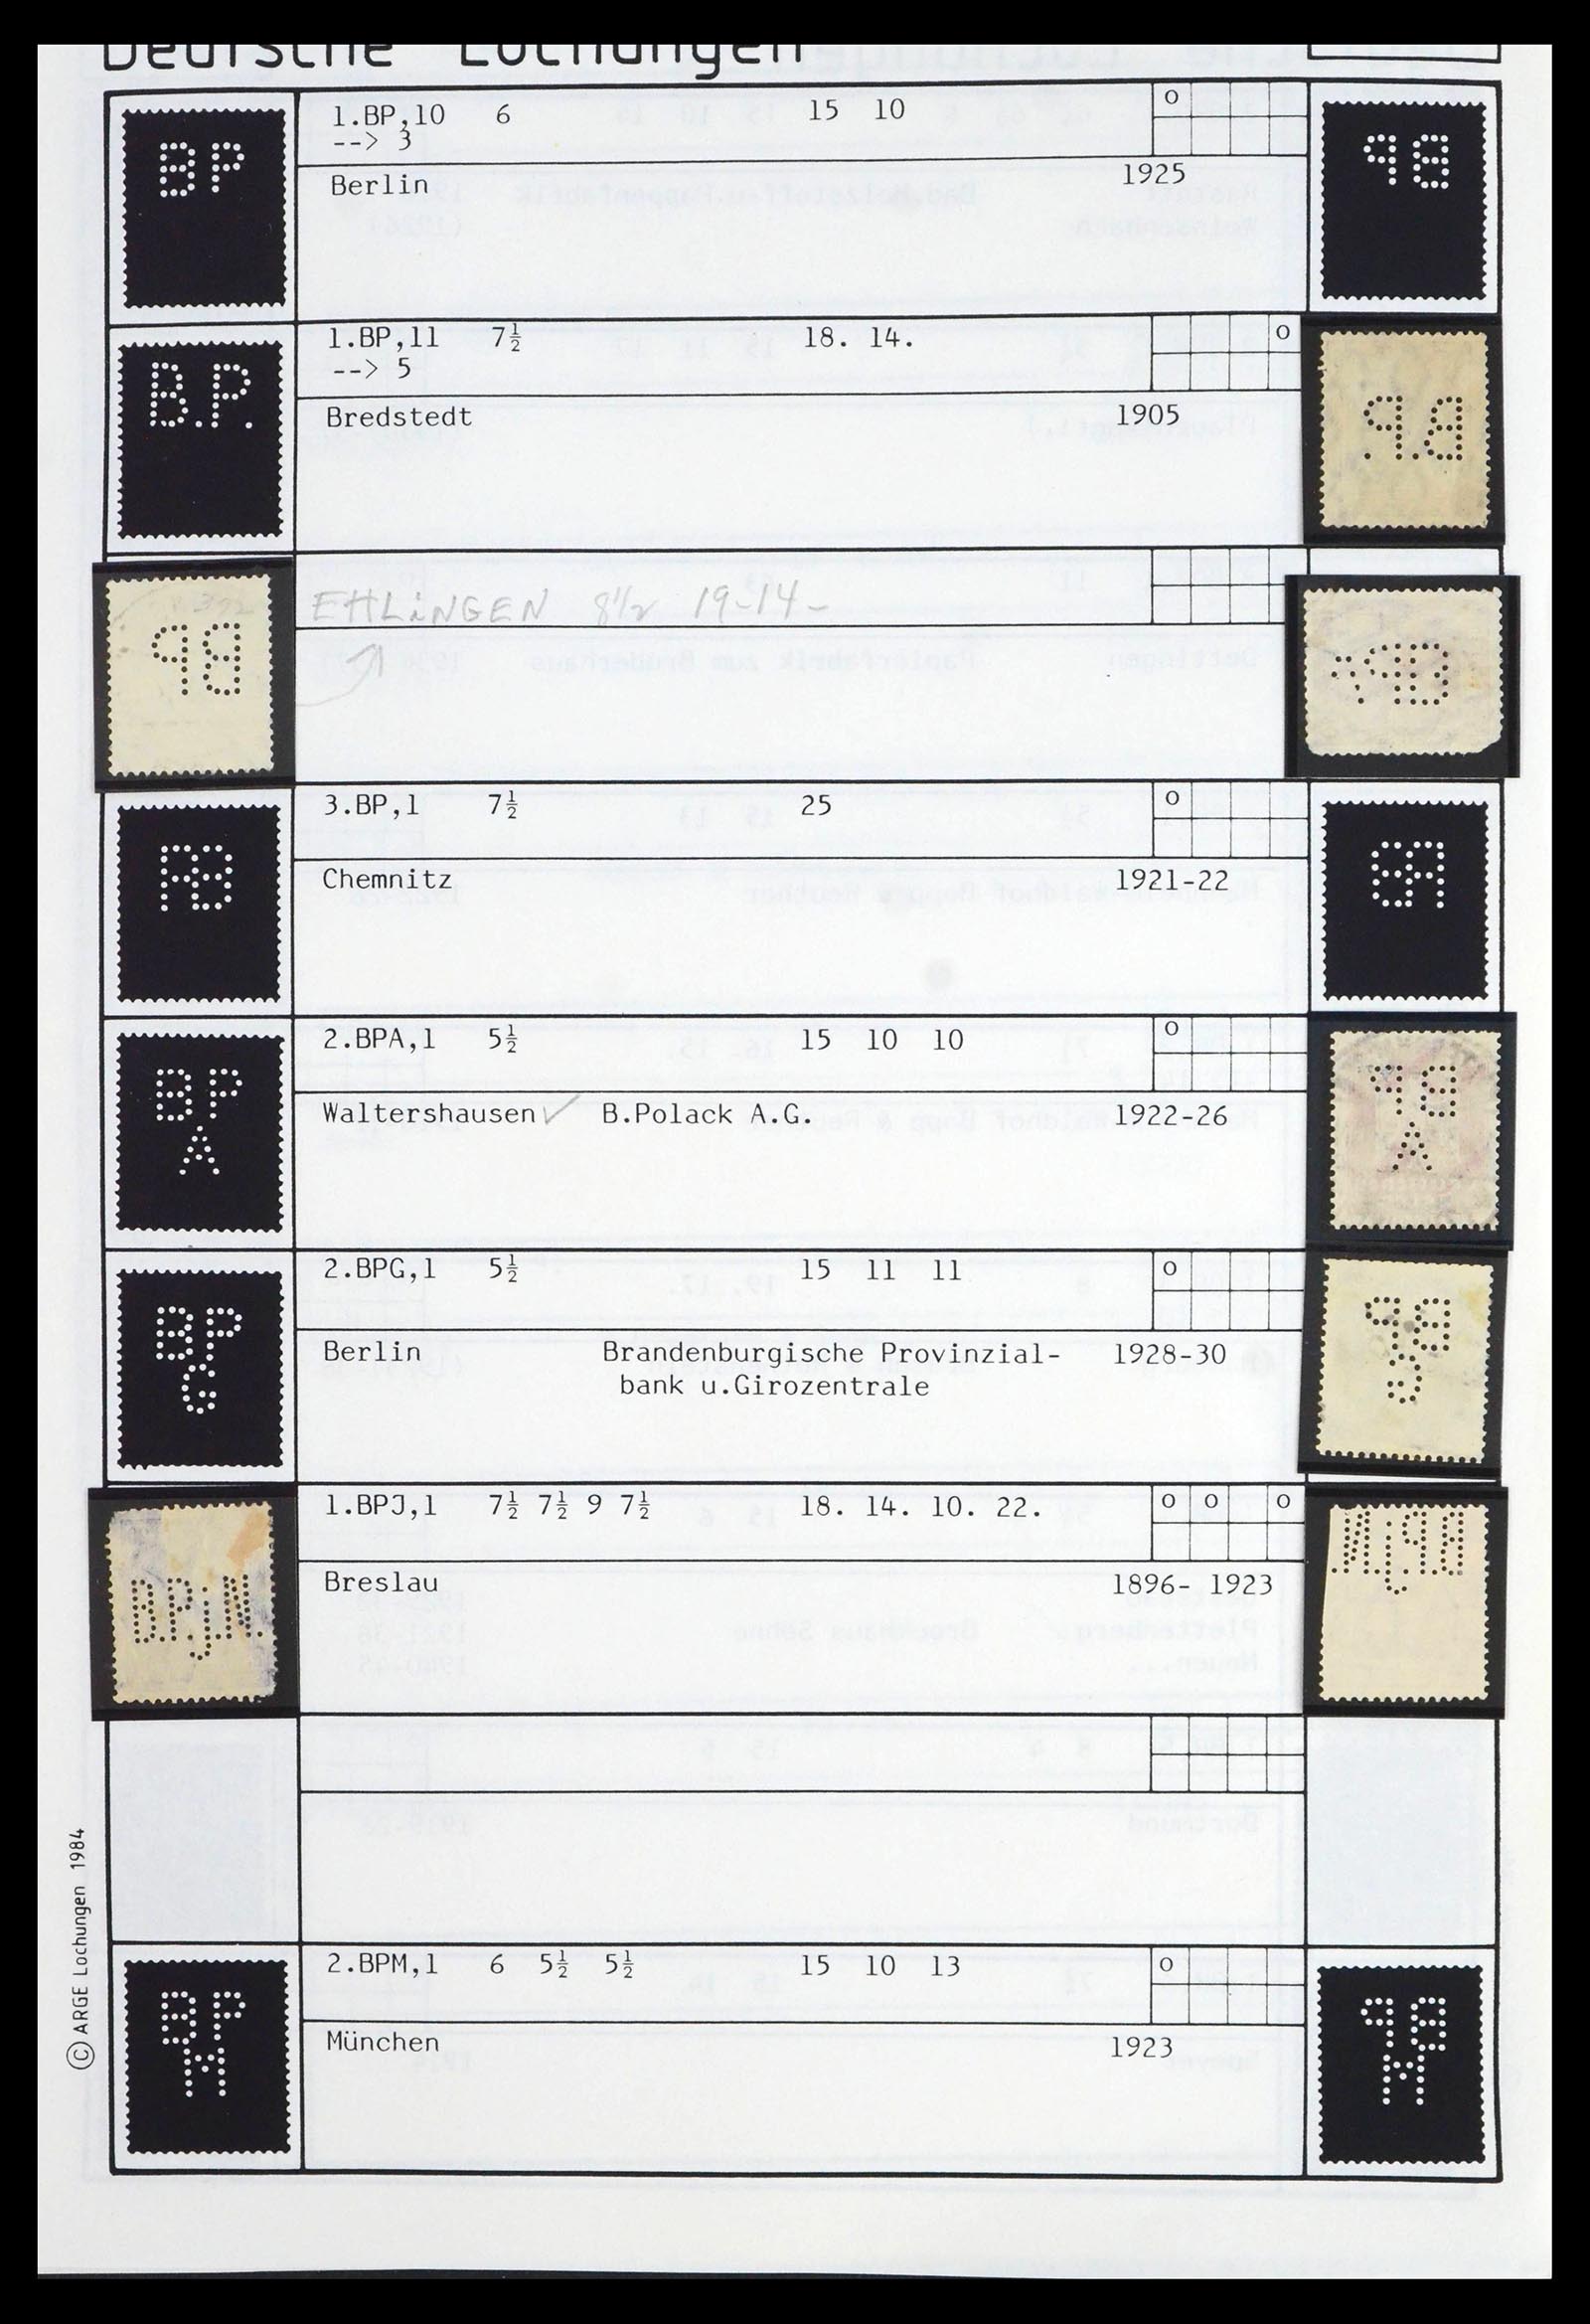 Deutsche Lochungen
BP
1.BP,10 6 15 10 o
--> 3
Berlin 1925
B.P.
1.BP,11 7½ 18. 14. o
--> 5
Bredstedt 1905
EHLiNGEN 8½ 19-14-
3.BP,1 7½ 25 o
Chemnitz 1921-22
BP
A
2.BPA,1 5½ 15 10 10 o
Waltershausen ✓ B.Polack A.G. 1922-26
BP
G
2.BPG,1 5½ 15 11 11 o
Berlin Brandenburgische Provinzial- 1928-30
bank u.Girozentrale
B.P.j.N.
1.BPJ,1 7½ 7½ 9 7½ 18. 14. 10. 22. o o o
Breslau 1896- 1923
BP
M
2.BPM,1 6 5½ 5½ 15 10 13 o
München 1923
© ARGE Lochungen 1984